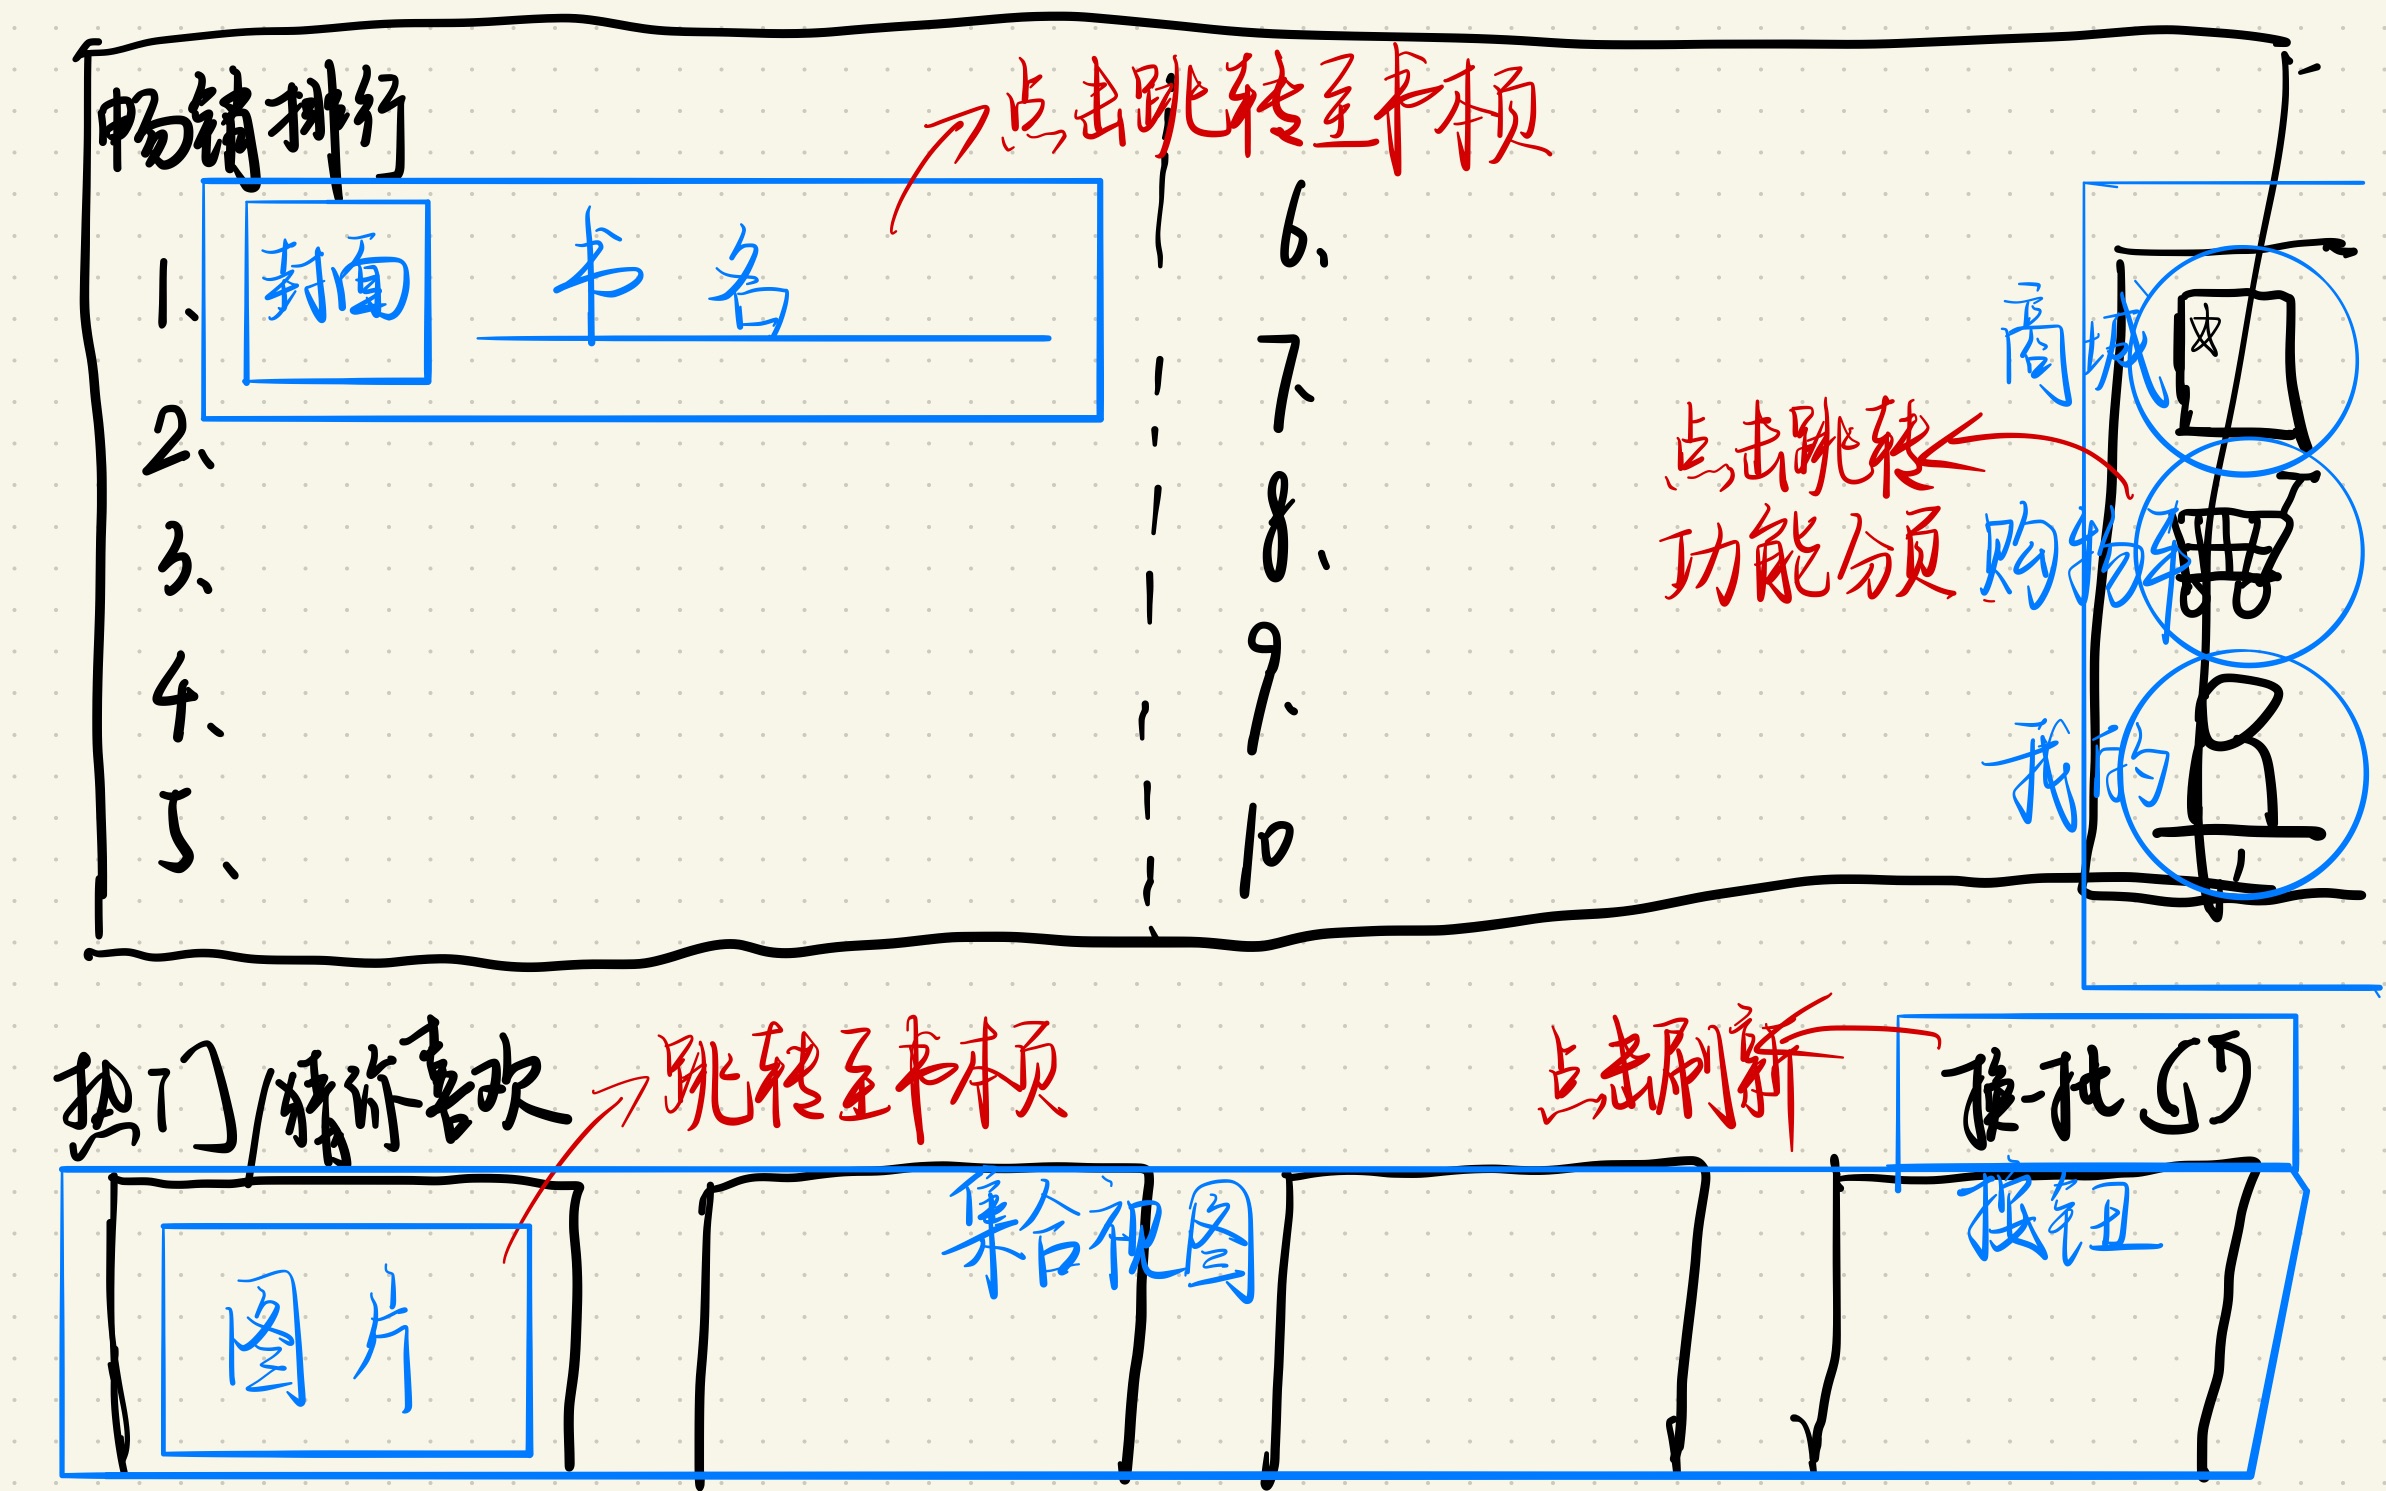 畅销排行
点击跳转至书本页
1、
封面
书名
2、
3、
4、
5、
6、
7、
8、
9、
10
商城
点击跳转
功能分页
购物车
我的
热门/猜你喜欢
跳转至书本页
点击刷新
换一批
集合视图
按钮
图片